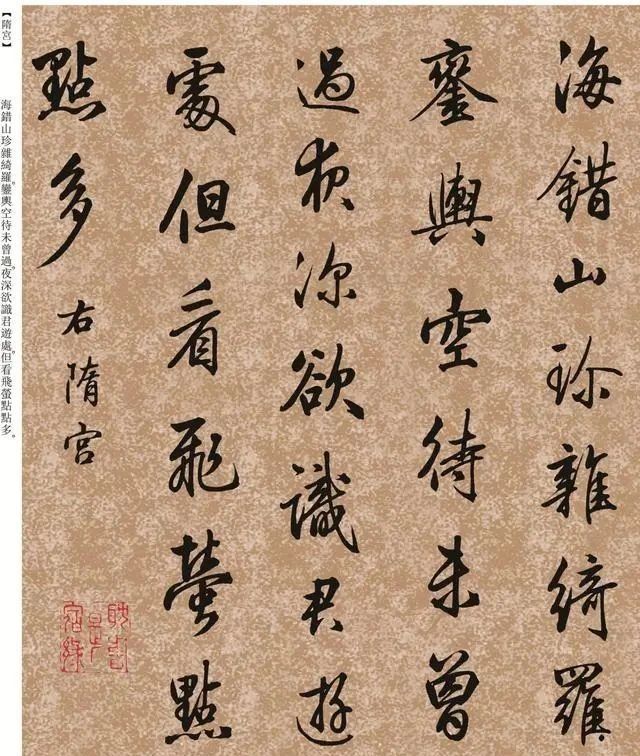 海錯山珍雜綺羅
鑾輿空待未曾
過夜深欲識君遊
處但看飛螢點
點多
右隋宮
【隋宮】
海錯山珍雜綺羅。鑾輿空待未曾過。夜深欲識君遊處。但看飛螢點點多。